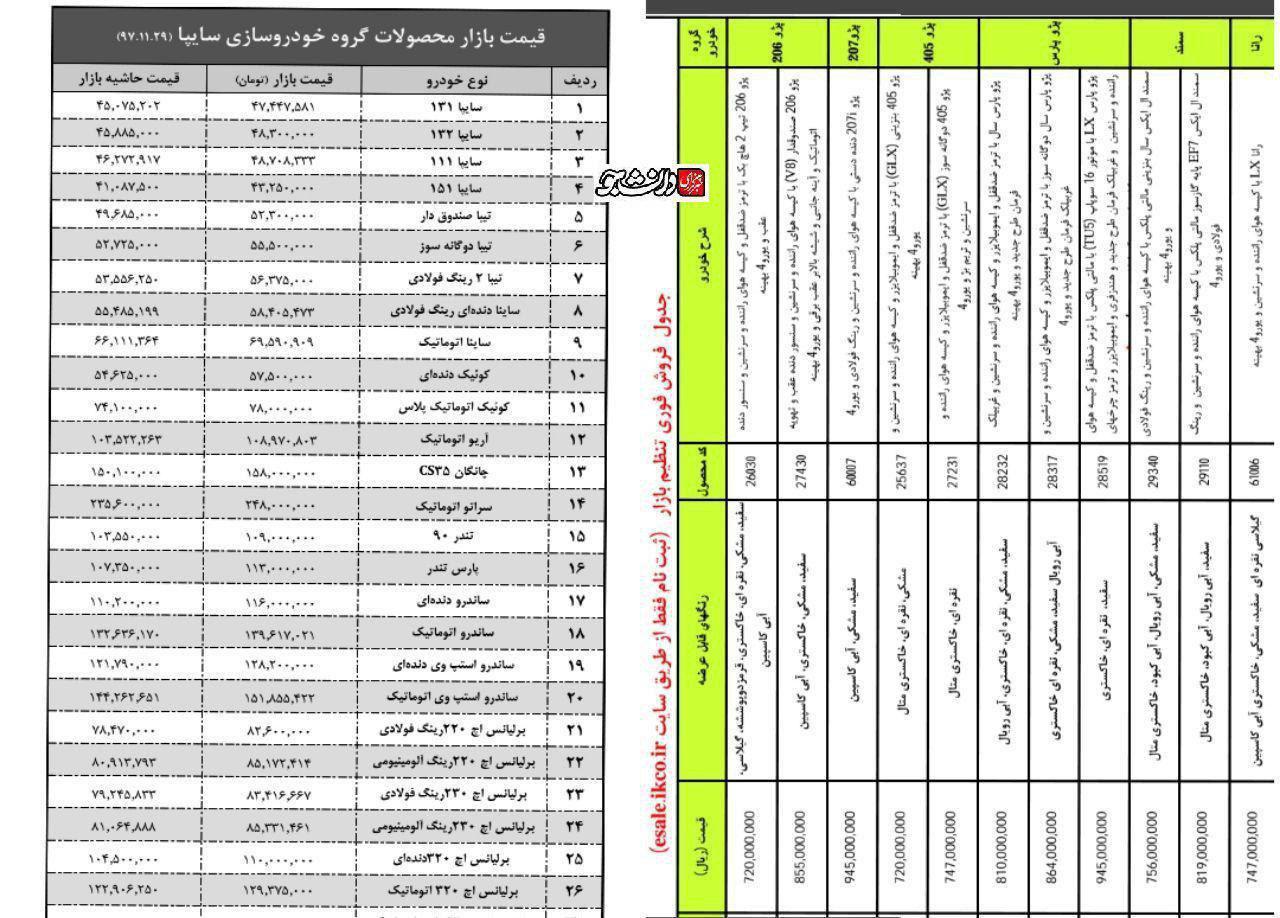 قیمت بازار محصولات گروه خودروسازی سایپا (۹۷.۱۱.۲۹)
ردیف نوع خودرو قیمت بازار (تومان) قیمت حاشیه بازار
۱ سایپا ۱۳۱ ۴۷,۴۴۷,۵۸۱ ۴۵,۰۷۵,۲۰۲
۲ سایپا ۱۳۲ ۴۸,۳۰۰,۰۰۰ ۴۵,۸۸۵,۰۰۰
۳ سایپا ۱۱۱ ۴۸,۷۰۸,۳۳۳ ۴۶,۲۷۲,۹۱۷
۴ سایپا ۱۵۱ ۴۳,۲۵۰,۰۰۰ ۴۱,۰۸۷,۵۰۰
۵ تیبا صندوق دار ۵۲,۳۰۰,۰۰۰ ۴۹,۶۸۵,۰۰۰
۶ تیبا دوگانه سوز ۵۵,۵۰۰,۰۰۰ ۵۲,۷۲۵,۰۰۰
۷ تیبا ۲ رینگ فولادی ۵۶,۳۷۵,۰۰۰ ۵۳,۵۵۶,۲۵۰
۸ ساینا دنده‌ای رینگ فولادی ۵۸,۴۰۵,۴۷۳ ۵۵,۴۸۵,۱۹۹
۹ ساینا اتوماتیک ۶۹,۵۹۰,۹۰۹ ۶۶,۱۱۱,۳۶۴
۱۰ کوئیک دنده‌ای ۵۷,۵۰۰,۰۰۰ ۵۴,۶۲۵,۰۰۰
۱۱ کوئیک اتوماتیک پلاس ۷۸,۰۰۰,۰۰۰ ۷۴,۱۰۰,۰۰۰
۱۲ آریو اتوماتیک ۱۰۸,۹۷۰,۸۰۳ ۱۰۳,۵۲۲,۲۶۳
۱۳ چانگان CS۳۵ ۱۵۸,۰۰۰,۰۰۰ ۱۵۰,۱۰۰,۰۰۰
۱۴ سراتو اتوماتیک ۲۴۸,۰۰۰,۰۰۰ ۲۳۵,۶۰۰,۰۰۰
۱۵ تندر ۹۰ ۱۰۹,۰۰۰,۰۰۰ ۱۰۳,۵۵۰,۰۰۰
۱۶ پارس تندر ۱۱۳,۰۰۰,۰۰۰ ۱۰۷,۳۵۰,۰۰۰
۱۷ ساندرو دنده‌ای ۱۱۶,۰۰۰,۰۰۰ ۱۱۰,۲۰۰,۰۰۰
۱۸ ساندرو اتوماتیک ۱۳۹,۶۱۷,۰۲۱ ۱۳۲,۶۳۶,۱۷۰
۱۹ ساندرو استپ وی دنده‌ای ۱۲۸,۲۰۰,۰۰۰ ۱۲۱,۷۹۰,۰۰۰
۲۰ ساندرو استپ وی اتوماتیک ۱۵۱,۸۵۵,۴۲۲ ۱۴۴,۲۶۲,۶۵۱
۲۱ برلیانس اچ ۲۲۰رینگ فولادی ۸۲,۶۰۰,۰۰۰ ۷۸,۴۷۰,۰۰۰
۲۲ برلیانس اچ ۲۲۰رینگ آلومینیومی ۸۵,۱۷۲,۴۱۴ ۸۰,۹۱۳,۷۹۳
۲۳ برلیانس اچ ۲۳۰رینگ فولادی ۸۳,۴۱۶,۶۶۷ ۷۹,۲۴۵,۸۳۳
۲۴ برلیانس اچ ۲۳۰رینگ آلومینیومی ۸۵,۳۳۱,۴۶۱ ۸۱,۰۶۴,۸۸۸
۲۵ برلیانس اچ ۳۲۰دنده‌ای ۱۱۰,۰۰۰,۰۰۰ ۱۰۴,۵۰۰,۰۰۰
۲۶ برلیانس اچ ۳۲۰ اتوماتیک ۱۲۹,۳۷۵,۰۰۰ ۱۲۲,۹۰۶,۲۵۰
خبرگزاری دانشجو
جدول فروش فوری تنظیم بازار (ثبت نام فقط از طریق سایت esale.ikco.ir)
گروه خودرو شرح خودرو کد محصول رنگهای قابل عرضه قیمت (ریال)
پژو 206
پژو 206 تیپ 2 هاچ بک با ترمز ضدقفل و کیسه هوای راننده و سرنشین و سنسور دنده
عقب و یورو4 بهینه
26030
سفید، مشکی، نقره ای، خاکستری، قرمزدوپوششه، گیلاسی،
آبی کاسپین
720,000,000
پژو 206 صندوقدار (V8) با کیسه هوای راننده و سرنشین و سنسور دنده عقب و تهویه
اتوماتیک و آینه جانبی و شیشه بالابر عقب برقی و یورو4 بهینه
27430
سفید، مشکی، خاکستری، آبی کاسپین
855,000,000
پژو207
پژو 207i دنده دستی با کیسه هوای راننده و سرنشین و رینگ فولادی و یورو4
60007
سفید، مشکی، آبی کاسپین
945,000,000
پژو 405
پژو 405 بنزینی (GLX) با ترمز ضدقفل و ایموبیلایزر و کیسه هوای راننده و سرنشین و
یورو4 بهینه
25637
مشکی، نقره ای، خاکستری متال
720,000,000
پژو 405 دوگانه سوز (GLX) با ترمز ضدقفل و ایموبیلایزر و کیسه هوای راننده و
سرنشین و تریم بژ و یورو4
27231
نقره ای، خاکستری متال
747,000,000
پژو پارس
پژو پارس سال با ترمز ضدقفل و ایموبیلایزر و کیسه هوای راننده و سرنشین و غربیلک
فرمان طرح جدید و یورو4 بهینه
28232
سفید، مشکی، نقره ای، خاکستری، آبی رویال
810,000,000
پژو پارس سال دوگانه سوز با ترمز ضدقفل و ایموبیلایزر و کیسه هوای راننده و سرنشین و
غربیلک فرمان طرح جدید و یورو4
28317
آبی رویال سفید، مشکی، نقره ای خاکستری
864,000,000
پژو پارس LX با موتور 16 سوپاپ (TU5) با مالتی پلکس با ترمز ضدقفل و کیسه هوای
راننده و سرنشین و غربیلک فرمان طرح جدید و هندزفری و ایموبیلایزر و ترمز چرخهای
28519
سفید، نقره ای، خاکستری
945,000,000
سمند
سمند ال ایکس سال بنزینی مالتی پلکس با کیسه هوای راننده و سرنشین و رینگ فولادی
و یورو4 بهینه
29340
سفید، مشکی، آبی رویال، آبی کبود، خاکستری متال
756,000,000
سمند ال ایکس EF7 پایه گازسوز مالتی پلکس با کیسه هوای راننده و سرنشین و رینگ
فولادی و یورو4
29110
سفید، آبی رویال، آبی کبود، خاکستری متال
819,000,000
رانا
رانا LX با کیسه هوای راننده و سرنشین و یورو4 بهینه
61006
گیلاسی نقره ای سفید، مشکی، خاکستری آبی کاسپین
747,000,000